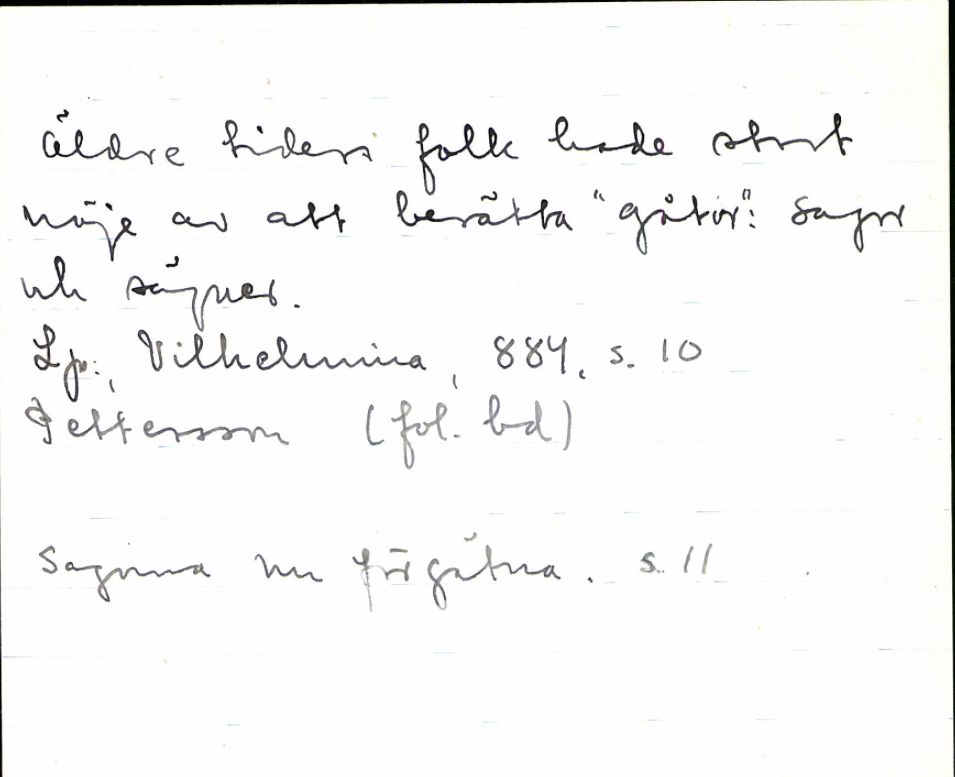 Äldre tiders folk hade stort
nöje av att berätta "gåtor": sagor
och sägner.
Lp:, Vilhelmina, 884, s. 10
Pettersson (fol. bd)
Sagorna nu förgätna. s. 11